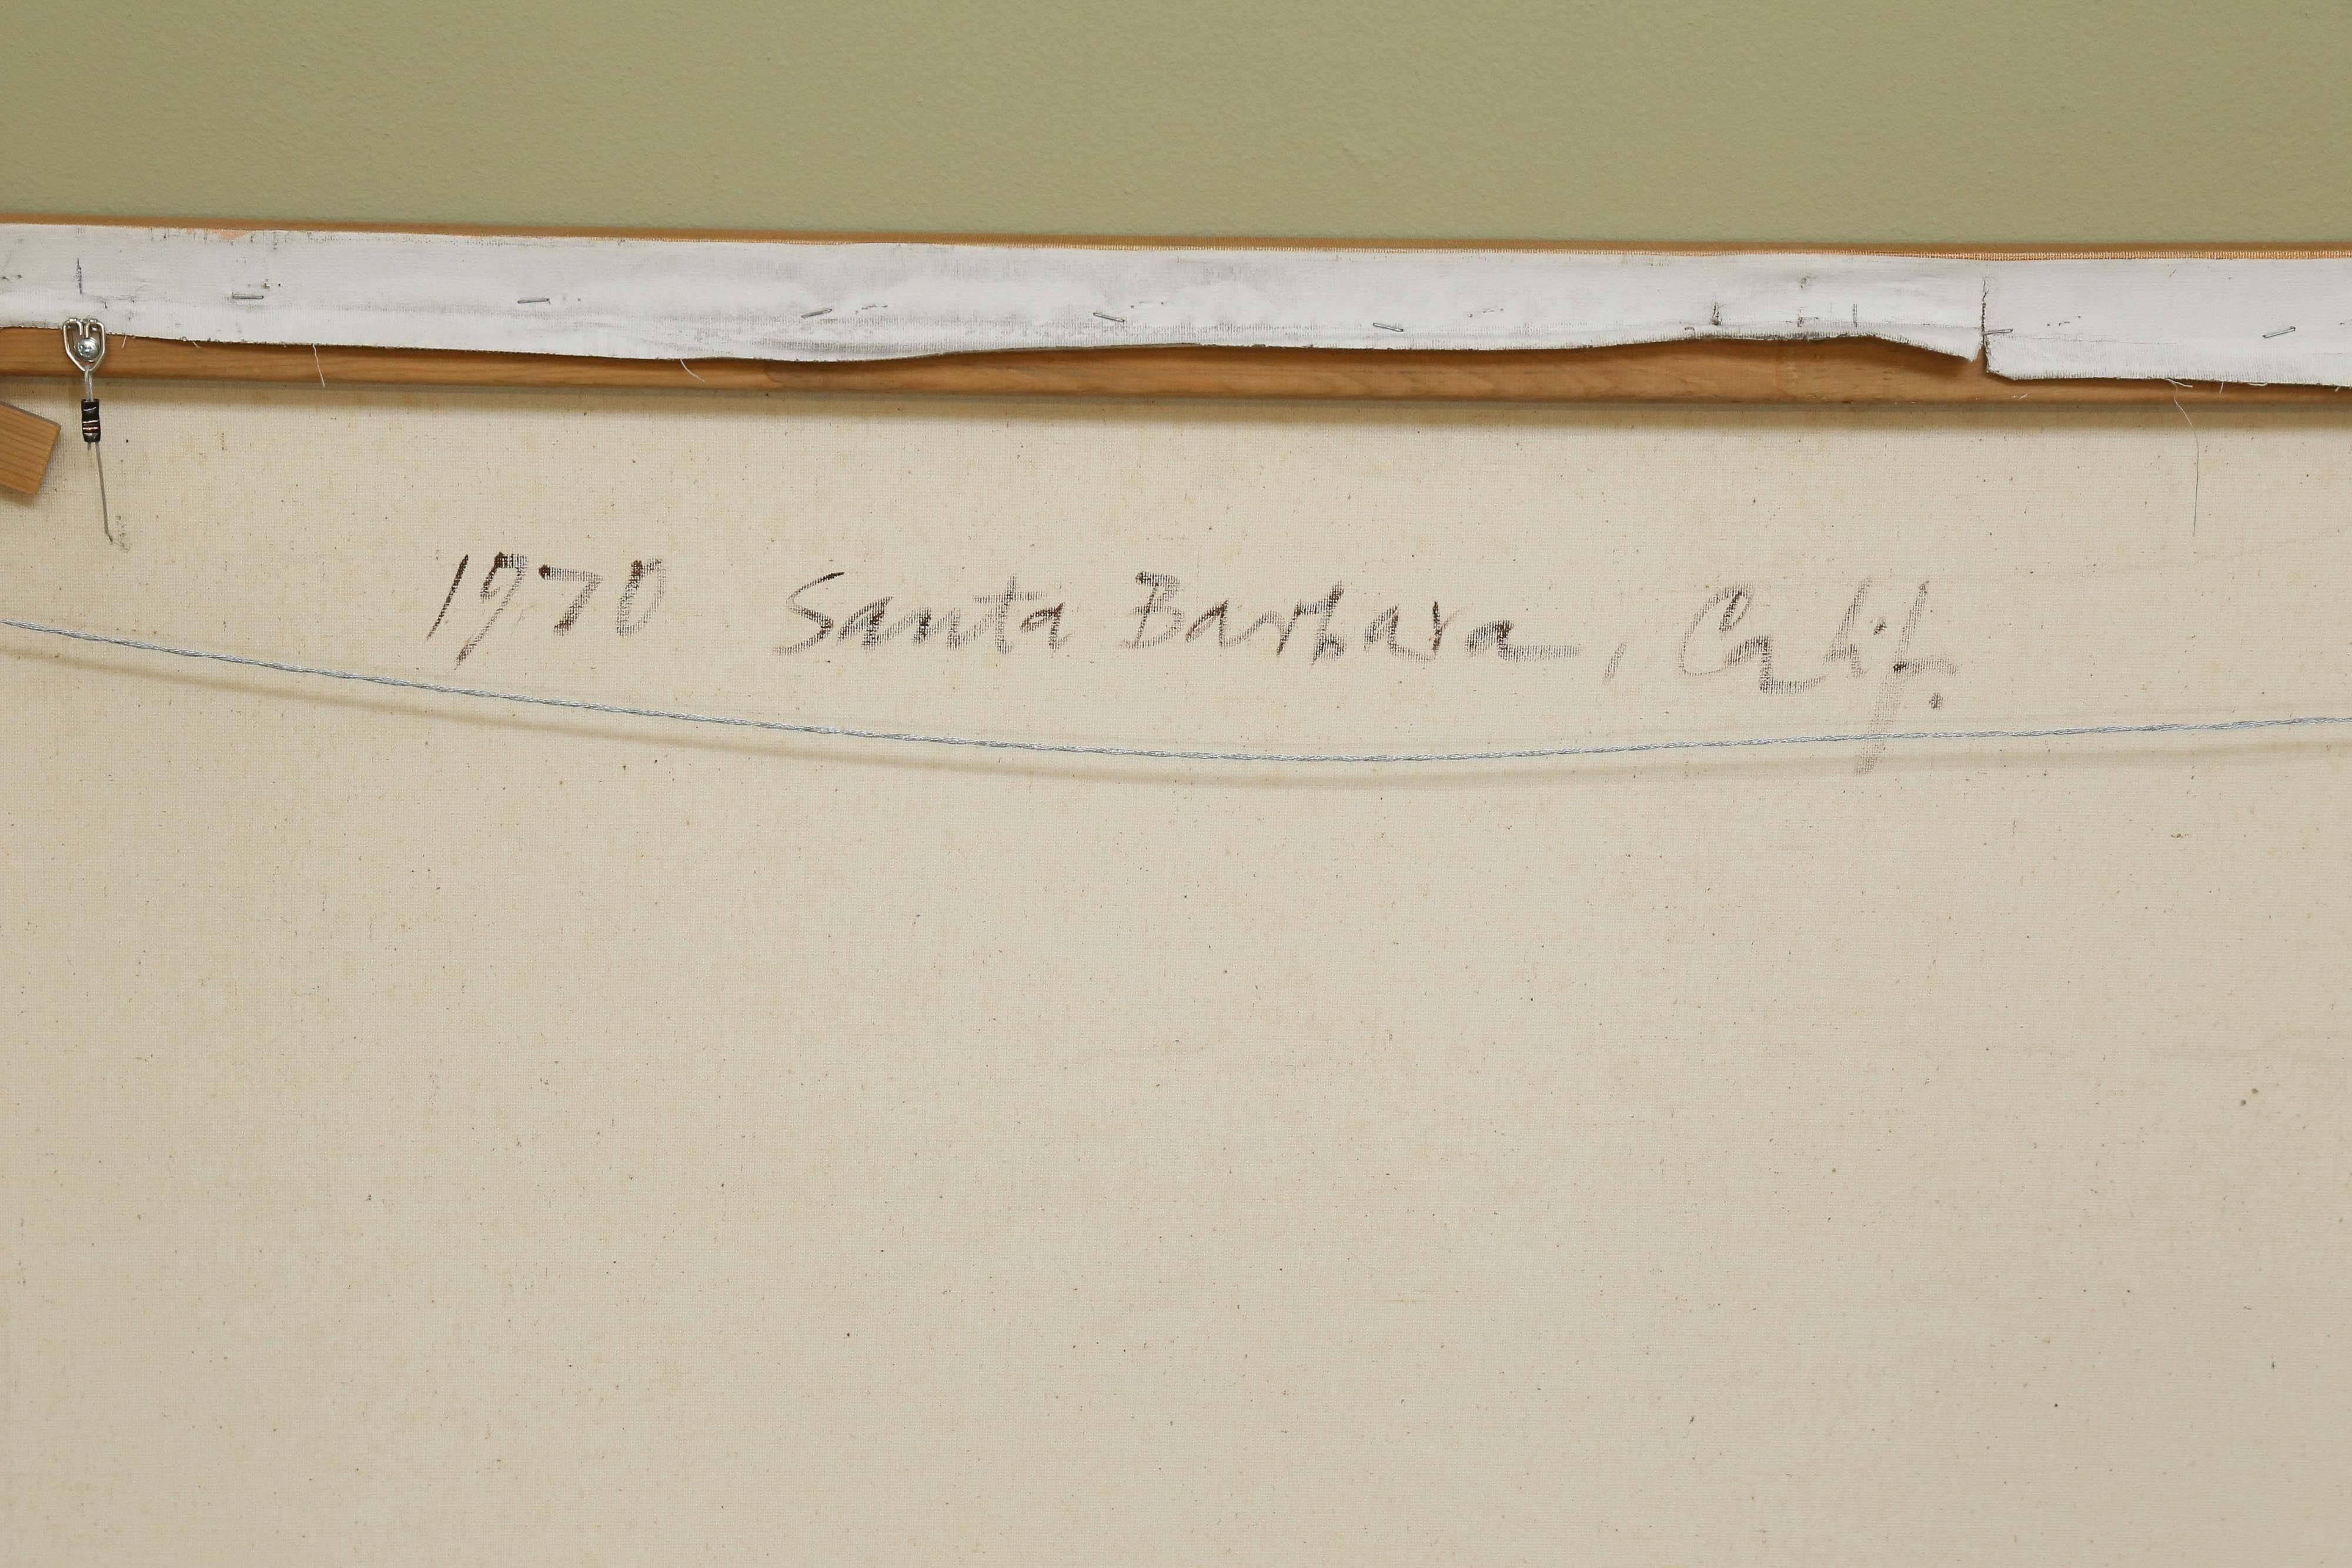 1970 Santa Barbara, Calif.